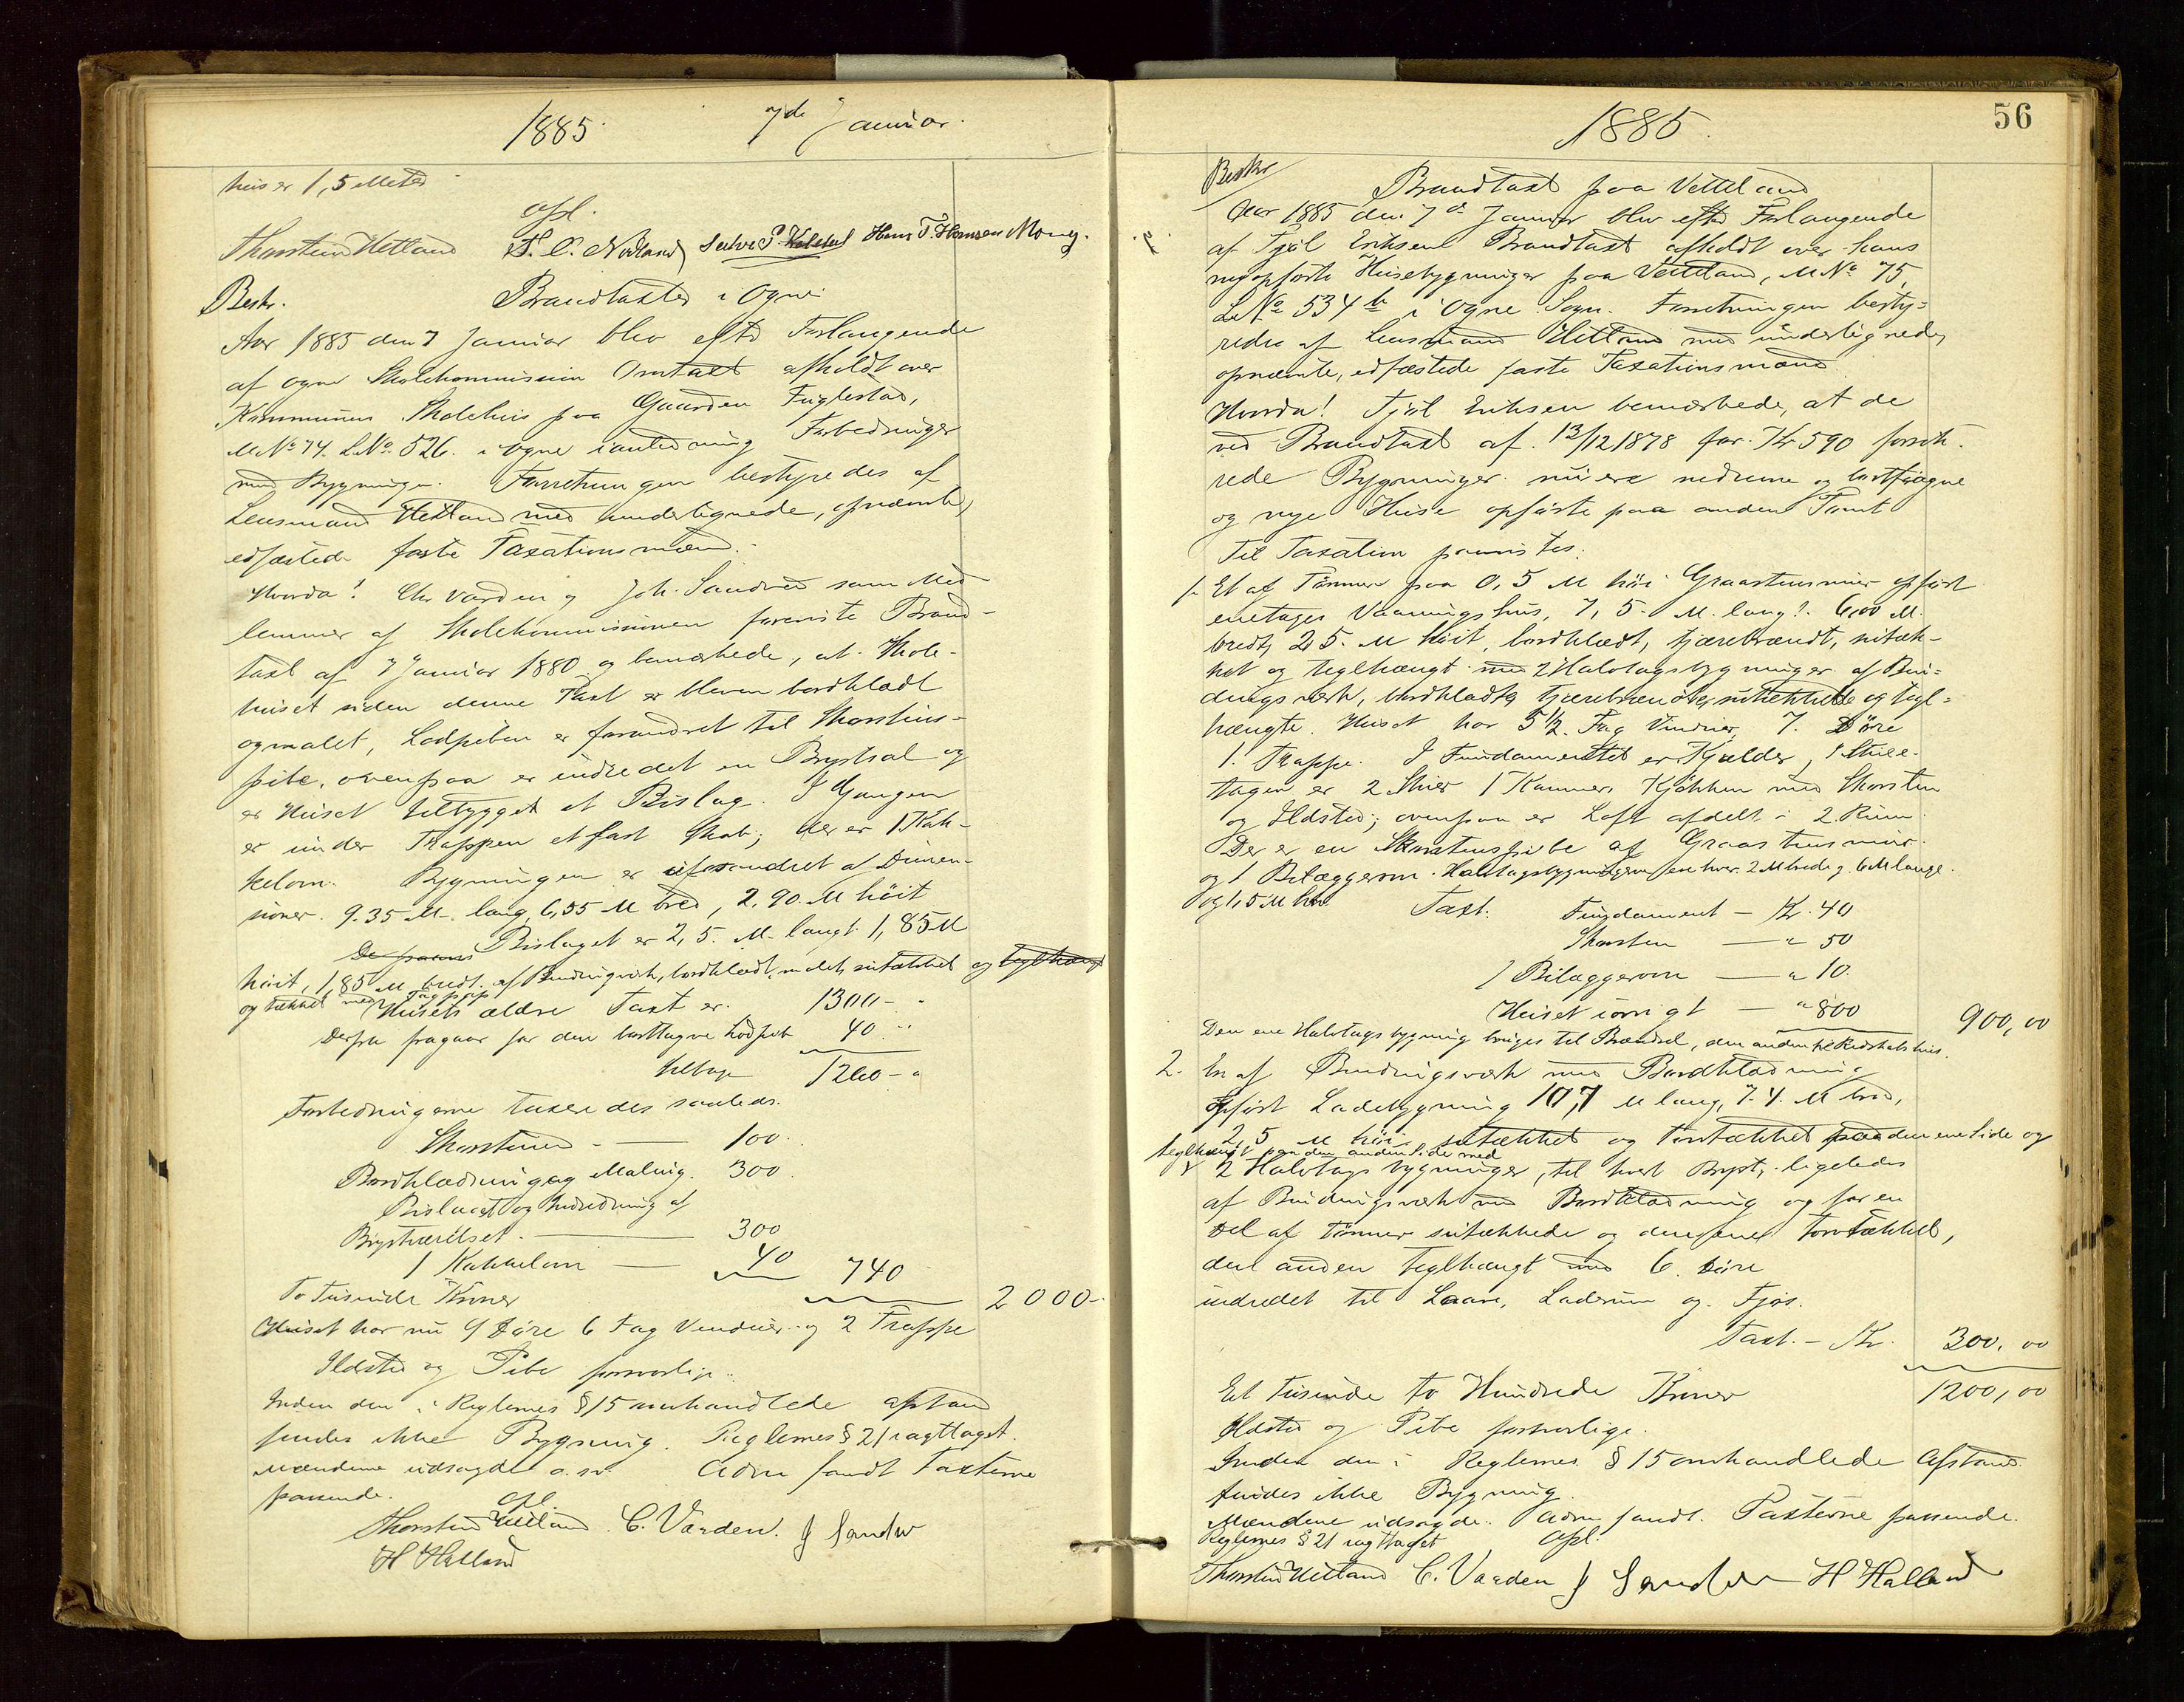 1885. 7de Januar.
hus er 1,5 Meter
opl.
Thorstein Hetland T. C. Nodland Hans T. Hansen Mong.
Beskr. Brandtaxter i Ogne
Aar 1885 den 7 Januar blev efter Forlangende
af Ogne Skolekommission Omtaxt afholdt over
Kommunens Skolehus paa Gaarden Fuglestad,
M No 74. L No 526. i Ogne i anledning Forbedringer
med Bygningen. Forretningen bestyredes af
Lensmand Hetland med undertegnede, opnævnte,
edfæstede faste Taxationsmænd.
Hvorda! Chr Varden og Joh. Sandved som Med
lemmer af Skolekommissionen foreviste Brand-
taxt af 7 Januar 1880 og bemærkede, at Skole-
huset siden denne Taxt er bleven bordklædt
og malet, Lodpiben er forandret til Skorstens-
pibe, ovenpaa er indredet en Brystsal og
er Huset tilbygget et Bislag. I Gangen
er under Trappen et fast Skab; der er 1 Kak-
kelovn. Bygningen er uforandret af Dimen-
sioner. 9.35 M. lang, 6,55 M bred, 2.90. M høit
Bislaget er 2,5. M. langt 1,85 M
høit, 1,85 M bredt. af Bindingsværk, bordklædt, malet, sutækket og teglhængt
og tækket med Tagpap Husets ældre Taxt er. 1300 - "
Derfra fragaar for den borttagne Lodpibe 40 "
tilbage 1260 - "
Forbedringerne taxeredes saaledes.
Skorstenen - — 100.
Bordklædning og Maling. 300
Bislaget og Indredning af
Brystværelset. — 300
1 Kakkelovn — 40 740
To Tusinde Kroner 2000-
Huset har nu 9 Døre 6 Fag Vinduer og 2 Trappe
Ildsted og Pibe forsvarlige.
Inden den i Reglernes § 15 omhandlede afstand
findes ikke Bygning. Reglernes § 21 iagttaget.
Mændene udsagde o. sv. Adm fandt Taxterne
passende.
opl.
Thorstein Hetland C. Varden. J Sandve
H Hetland
1885. 56
Beskr
Brandtaxt paa Vetteland
Aar 1885 den 7de Januar blev efter Forlangende
af Tjøl Eriksen Brandtaxt afholdt over hans
nyopførte Husebygninger paa Vetteland, M No 75,
L No 534 b i Ogne Sogn. Forretningen besty-
redes af Lensmand Hetland med undertegnede,
opnævnte, edfæstede faste Taxationsmænd
Hvorda! Tjøl Eriksen bemærkede, at de
ved Brandtaxt af 13/12 1878 for Kr 590 forsik-
rede Bygninger nu ere nedrevne og bortføgne
og nye Huse opførte paa anden Tomt
Til Taxation paavistes:
1. Et af Tømmer paa 0,5 M høi Graastensmur opført
enetages Vaaningshus, 7,5 M. langt. 6,00 M.
bredt, 2,5. M høit, bordklædt, tjærebrændt, sutæk-
ket og teglhængt med 2 Halvtagsbygninger af Bin-
dingsværk, bordklædte, tjærebrændte, sutækkede og tegl-
hængte. Huset har 5 1/2. Fag Vinduer, 7. Døre
1. Trappe. I Fundamentet er Kjælder, 1 Stue-
tagen er 2 Stuer 1 Kammer, Kjøkken med Skorsten
og Ildsted; ovenpaa er Loft afdelt i 2. Rum.
Der er en Skorstenspibe af Graastensmur.
og 1 Bilæggerovn. Halvtagsbygningerne ere hver. 2 M brede g. 6 M lange.
og 1,5 M høi Taxt. Fundament — Kr. 40
Skorsten — " 50
1 Bilæggerovn — " 10.
Huset iøvrigt — " 800 900,00
Den ene Halvtagsbygning bruges til Brændsel, den anden til Redskabshus.
2. En af Bindingsværk med Bordklædning
opført Ladebygning 10,7 M lang, 7.4. M bred,
2,5 M høi, sutækket og torvtækket paa den ene Side og
teglhængt paa den anden Side med
2 Halvtagsbygninger, til hvert Bryst, ligeledes
af Bindingsværk med Bordklædning og for en
Del af Tømmer sutækkede og den ene torvtækket,
den anden teglhængt med 6 Døre
indredet til Laave, Laderum og Fjøs.
Taxt. - Kr. 300,00
Et tusinde to Hundrede Kroner 1200,00
Ildsted og Pibe forsvarlige.
Inden den i Reglernes § 15 omhandlede Afstand
findes ikke Bygning.
Mændene udsagde. Adm fandt Taxterne passende.
Reglernes § 21 iagttaget opl.
Thorstein Hetland C. Varden J Sandve H Hetland